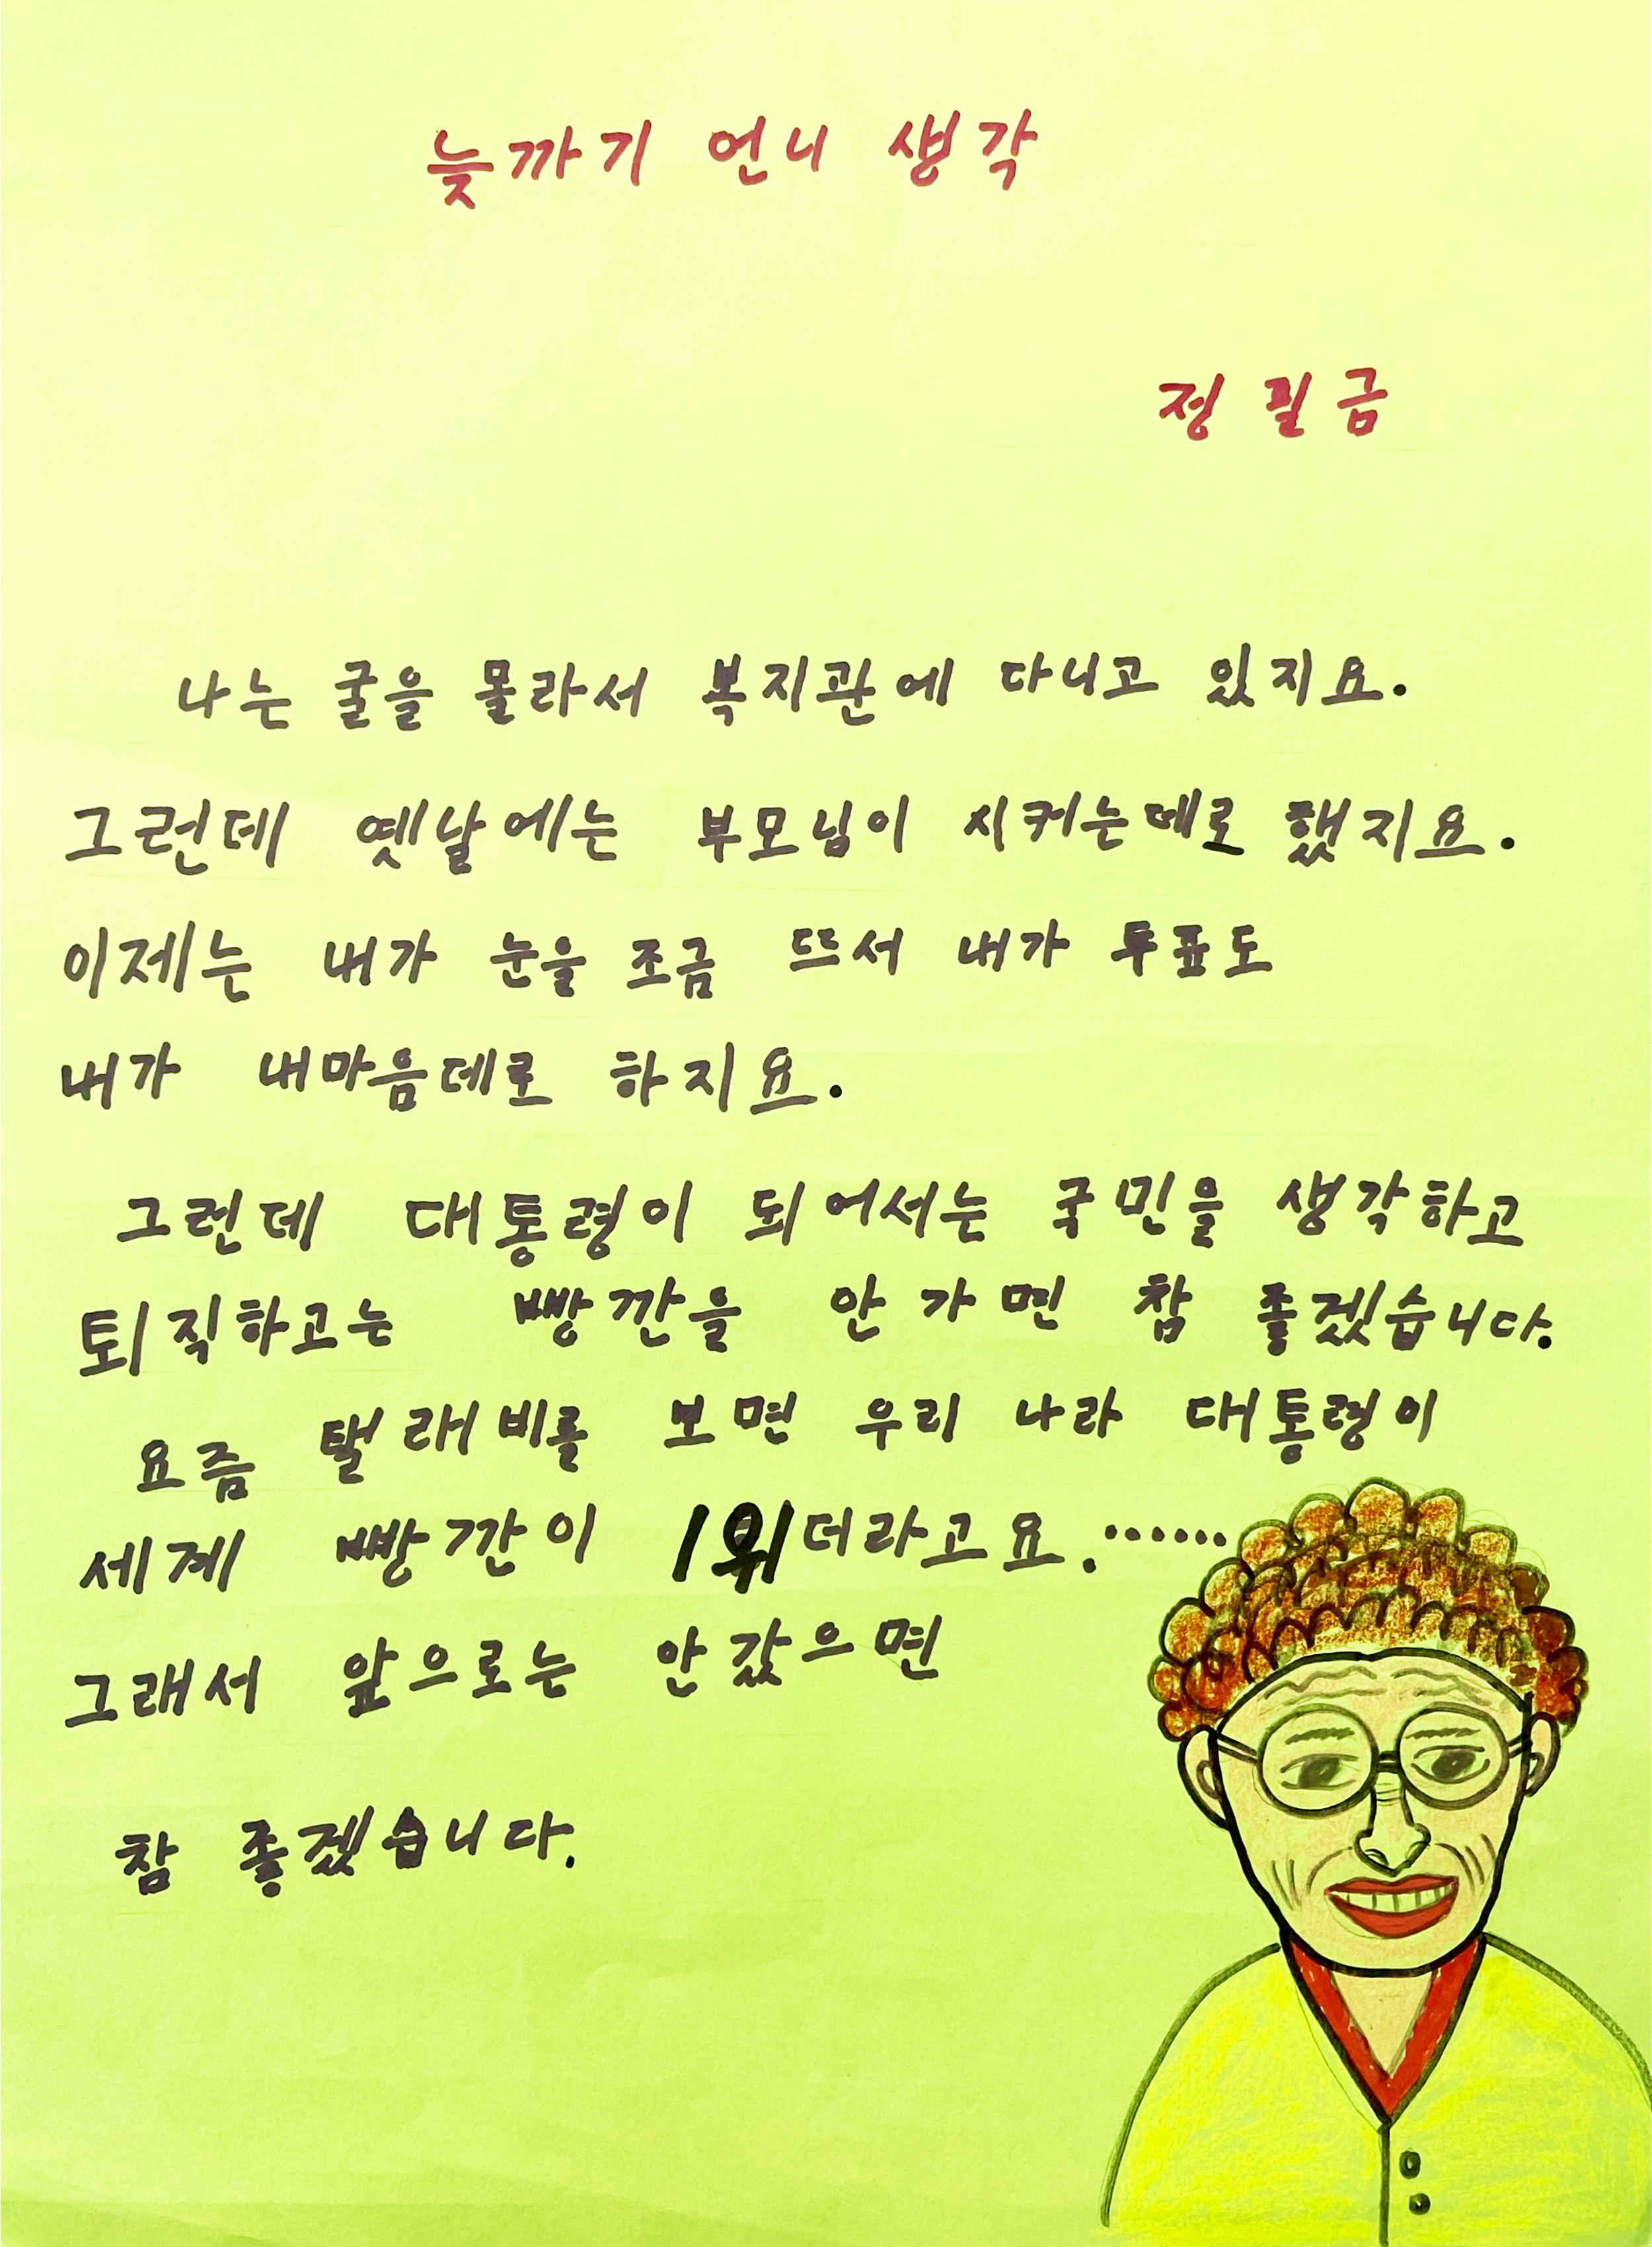 늦까기 언니 생각
정필금
나는 굴을 몰라서 복지관에 다니고 있지요.
그런데 옛날에는 부모님이 시커는데로 했지요.
이제는 내가 눈을 조금 뜨서 내가 투표도
내가 내마음데로 하지요.
그런데 대통령이 되어서는 국민을 생각하고
퇴직하고는 빵깐을 안 가면 참 좋겠습니다.
요즘 탤래비를 보면 우리 나라 대통령이
세계 빵깐이 1위더라고요.......
그래서 앞으로는 안갔으면
참 좋겠습니다.